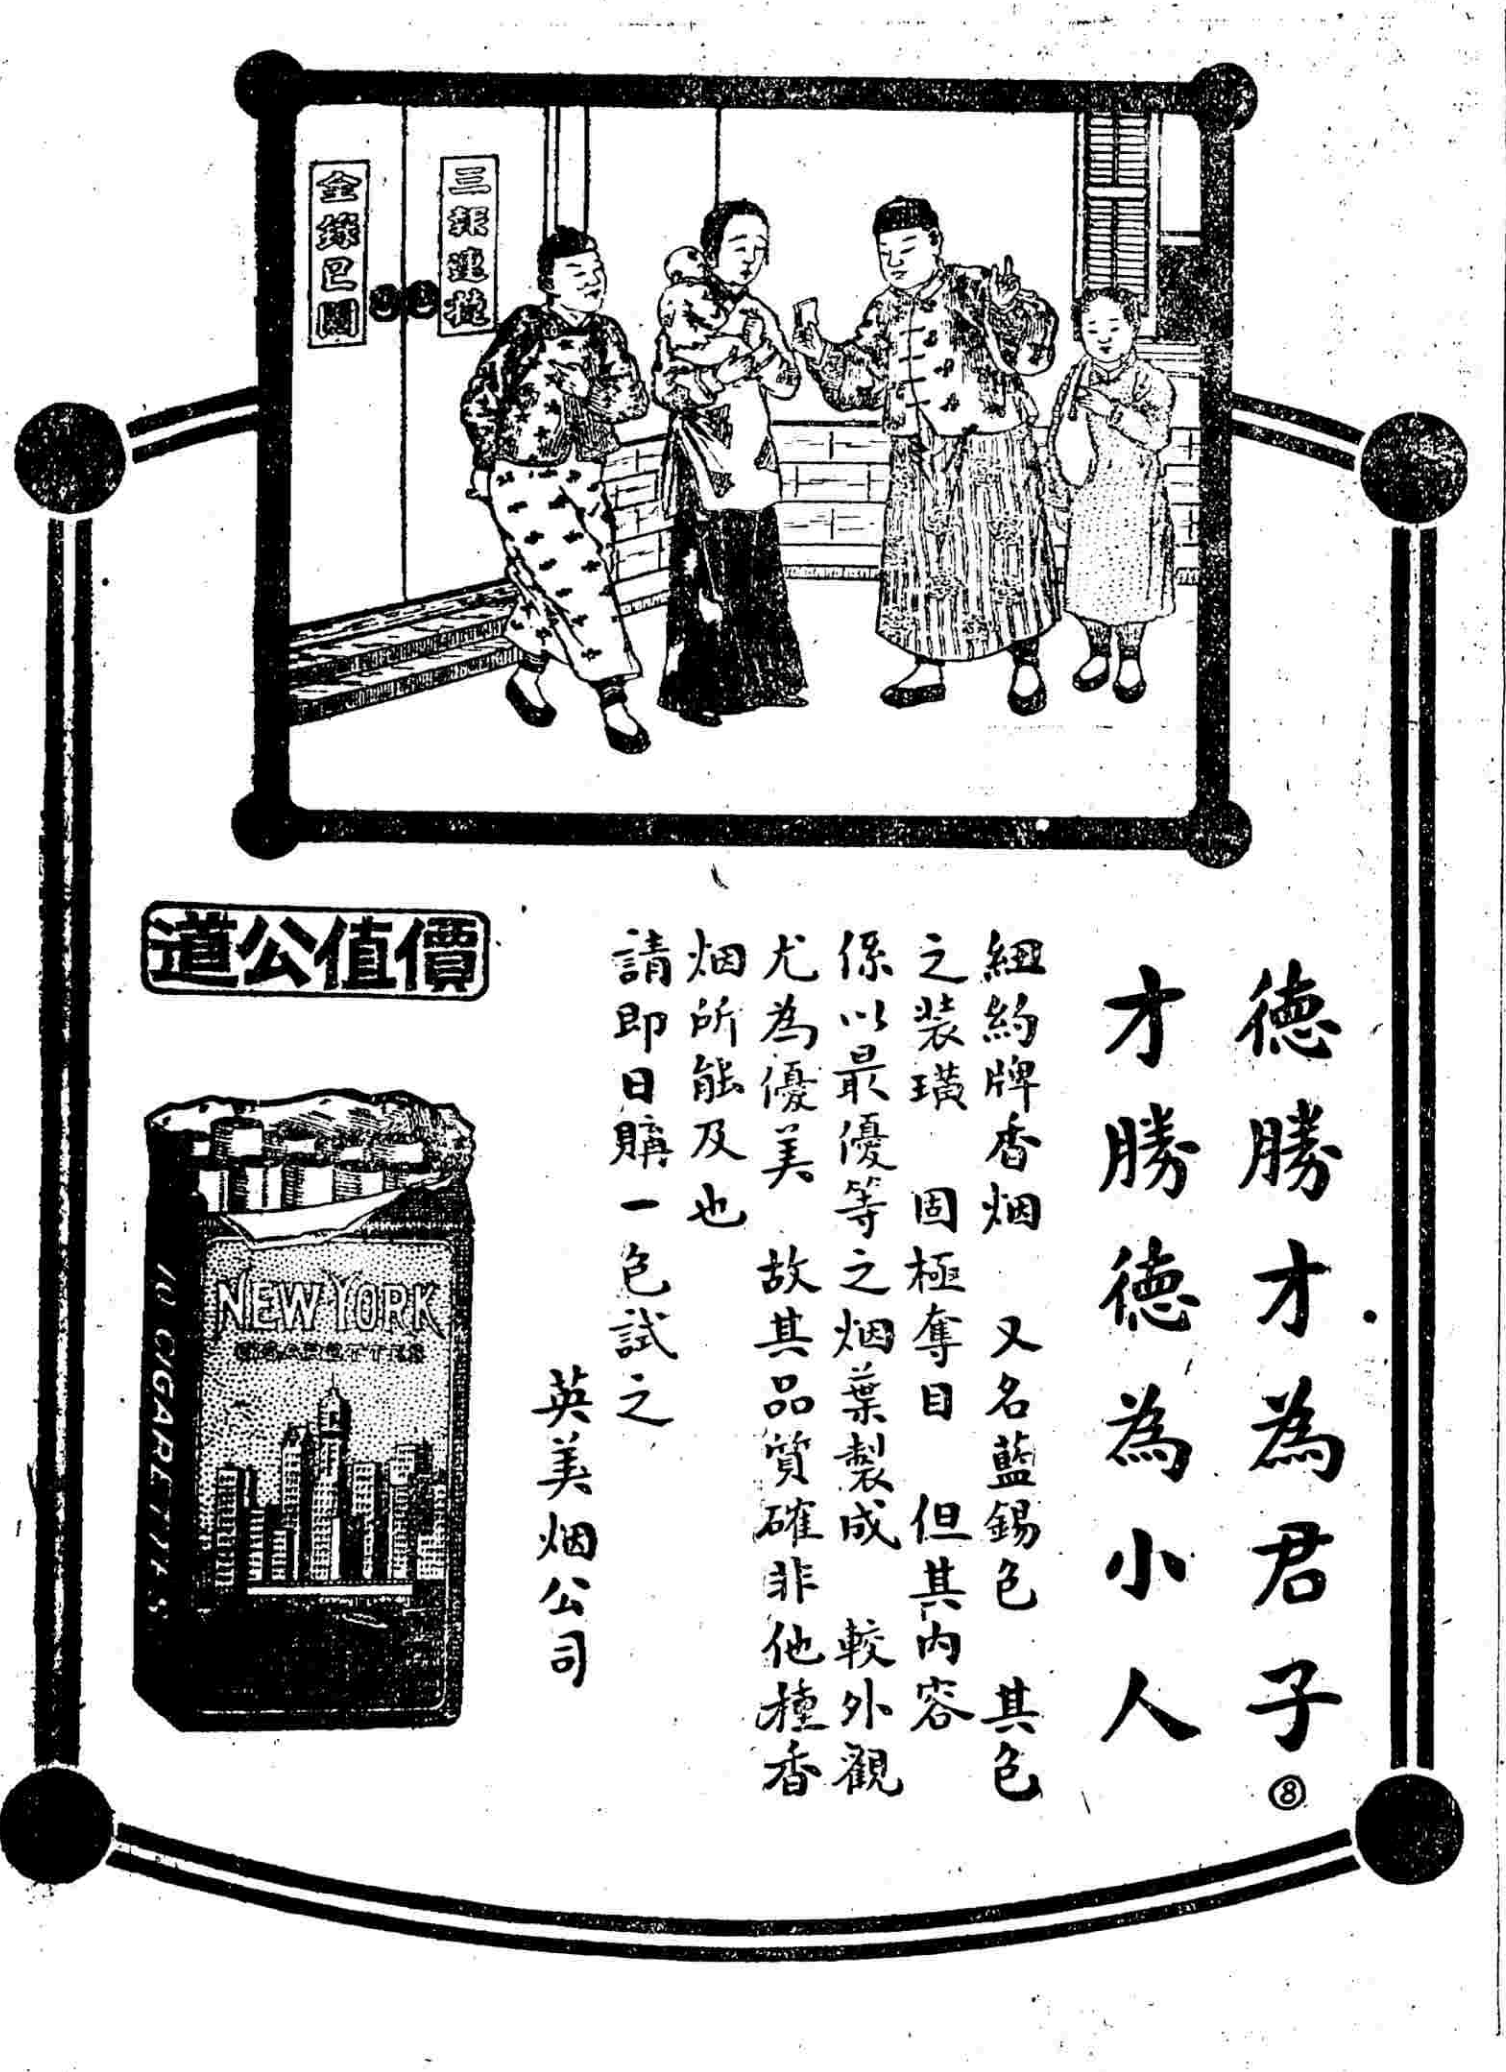 三報連捷
全錄已圓
德勝才為君子⑧
才勝德為小人
紐約牌香烟 又名藍錫包 其包
之裝璜 固極奪目 但其內容
係以最優等之烟葉製成 較外觀
尤為優美 故其品質確非他種香
烟所能及也
請即日購一包試之
英美烟公司
價值公道
NEW YORK
CIGARETTES
10 CIGARETTES